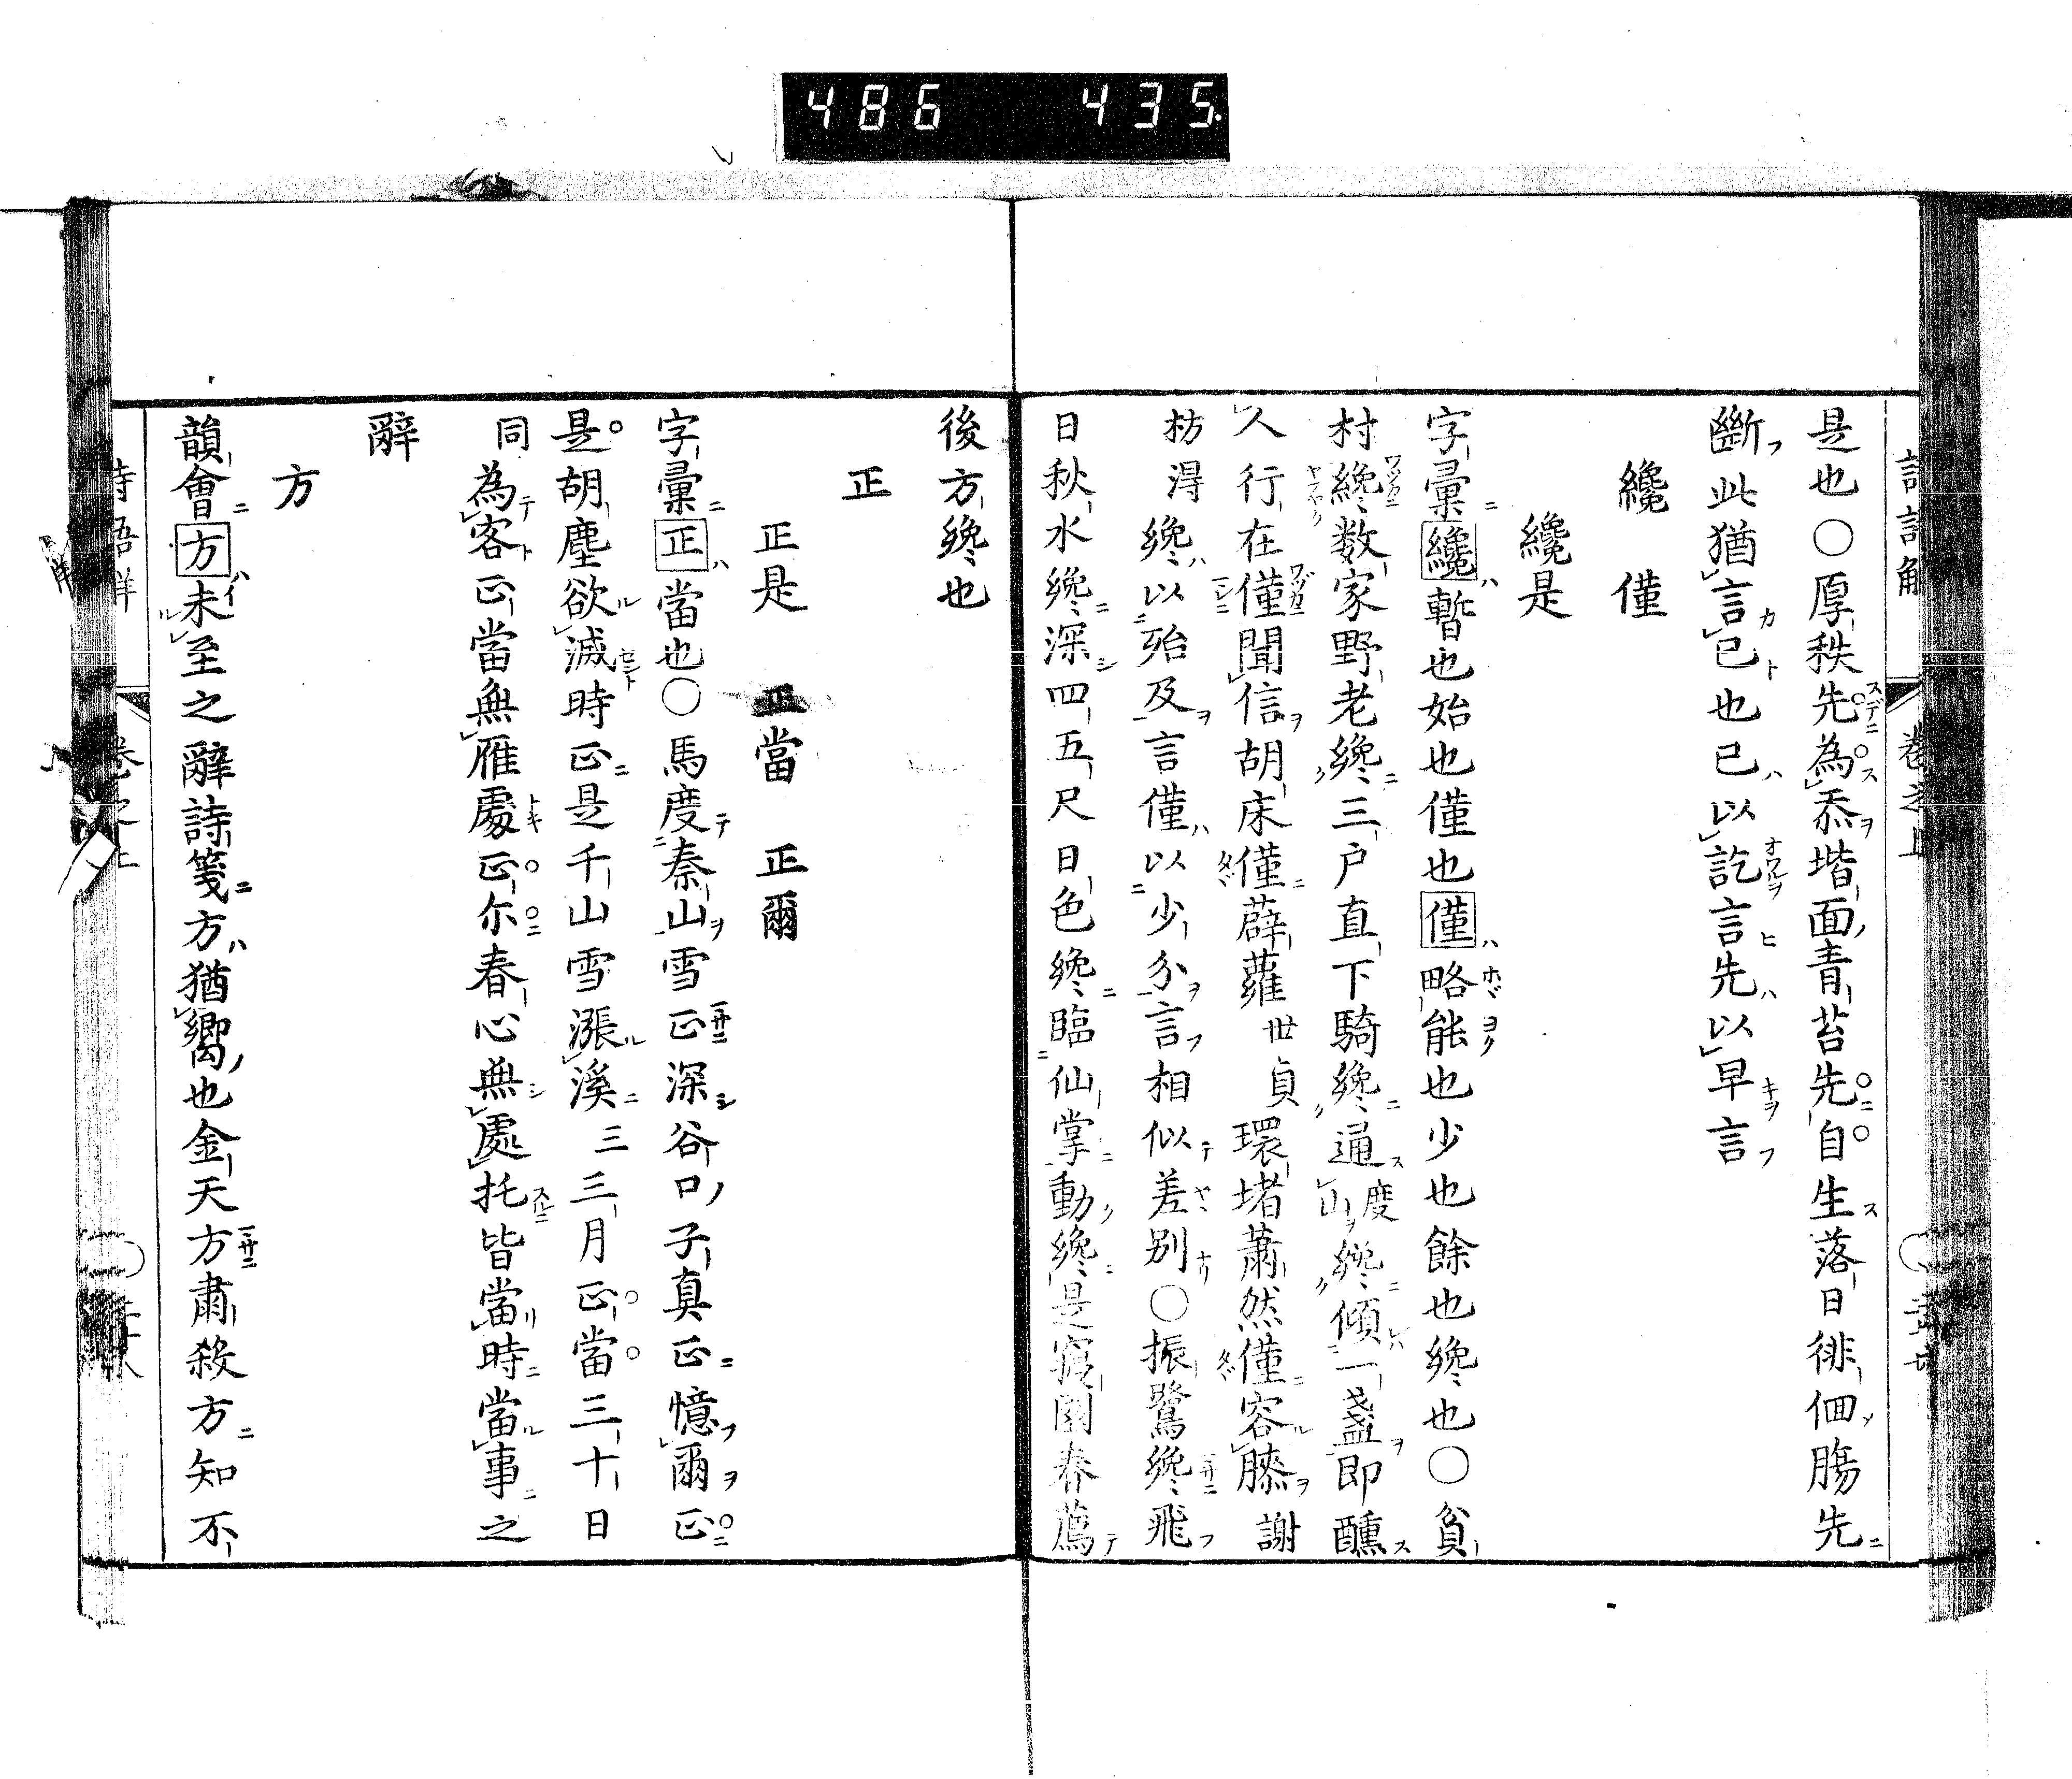 486 435
是也○厚秩先為忝堦面青苔先自生落日徘徊腸先
斷此猶言已也已以訖言先以早言
纔 僅
纔是
字彙纔暫也始也僅也僅略能也少也餘也纔也○貧
村纔数家野老纔三户直下騎纔通度山纔傾一盞即醺
人行在僅聞信胡床僅薜蘿世貞環堵蕭然僅容膝謝
枋得纔以殆及言僅以少分言相似差別○振鷺纔飛
日秋水纔深四五尺日色纔臨仙掌動纔是寢園春薦
後方纔也
正
正是 正當 正爾
字彙正當也○馬度秦山雪正深谷口子真正憶爾正
是胡塵欲滅時正是千山雪漲溪三三月正當三十日
同為客正當無雁處正尓春心無處托皆當時當事之
辭
方
韻會方未至之辭詩箋方猶嚮也金天方肅殺方知不